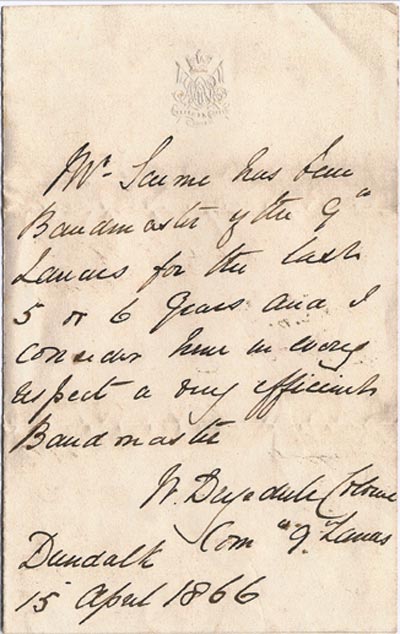 Mr. Sermé has been
Bandmaster of the 9th
Lancers for the last
5 or 6 years and I
consider him in every
respect a very efficient
Bandmaster
W. Drysdale Colonel
Com "9" Lancers
Dundalk
15 April 1866